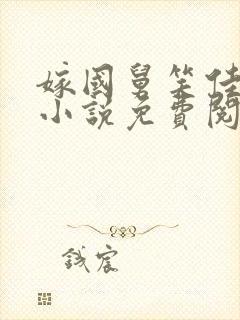 嫁國舅笑佳
小說免費閱
錢宸